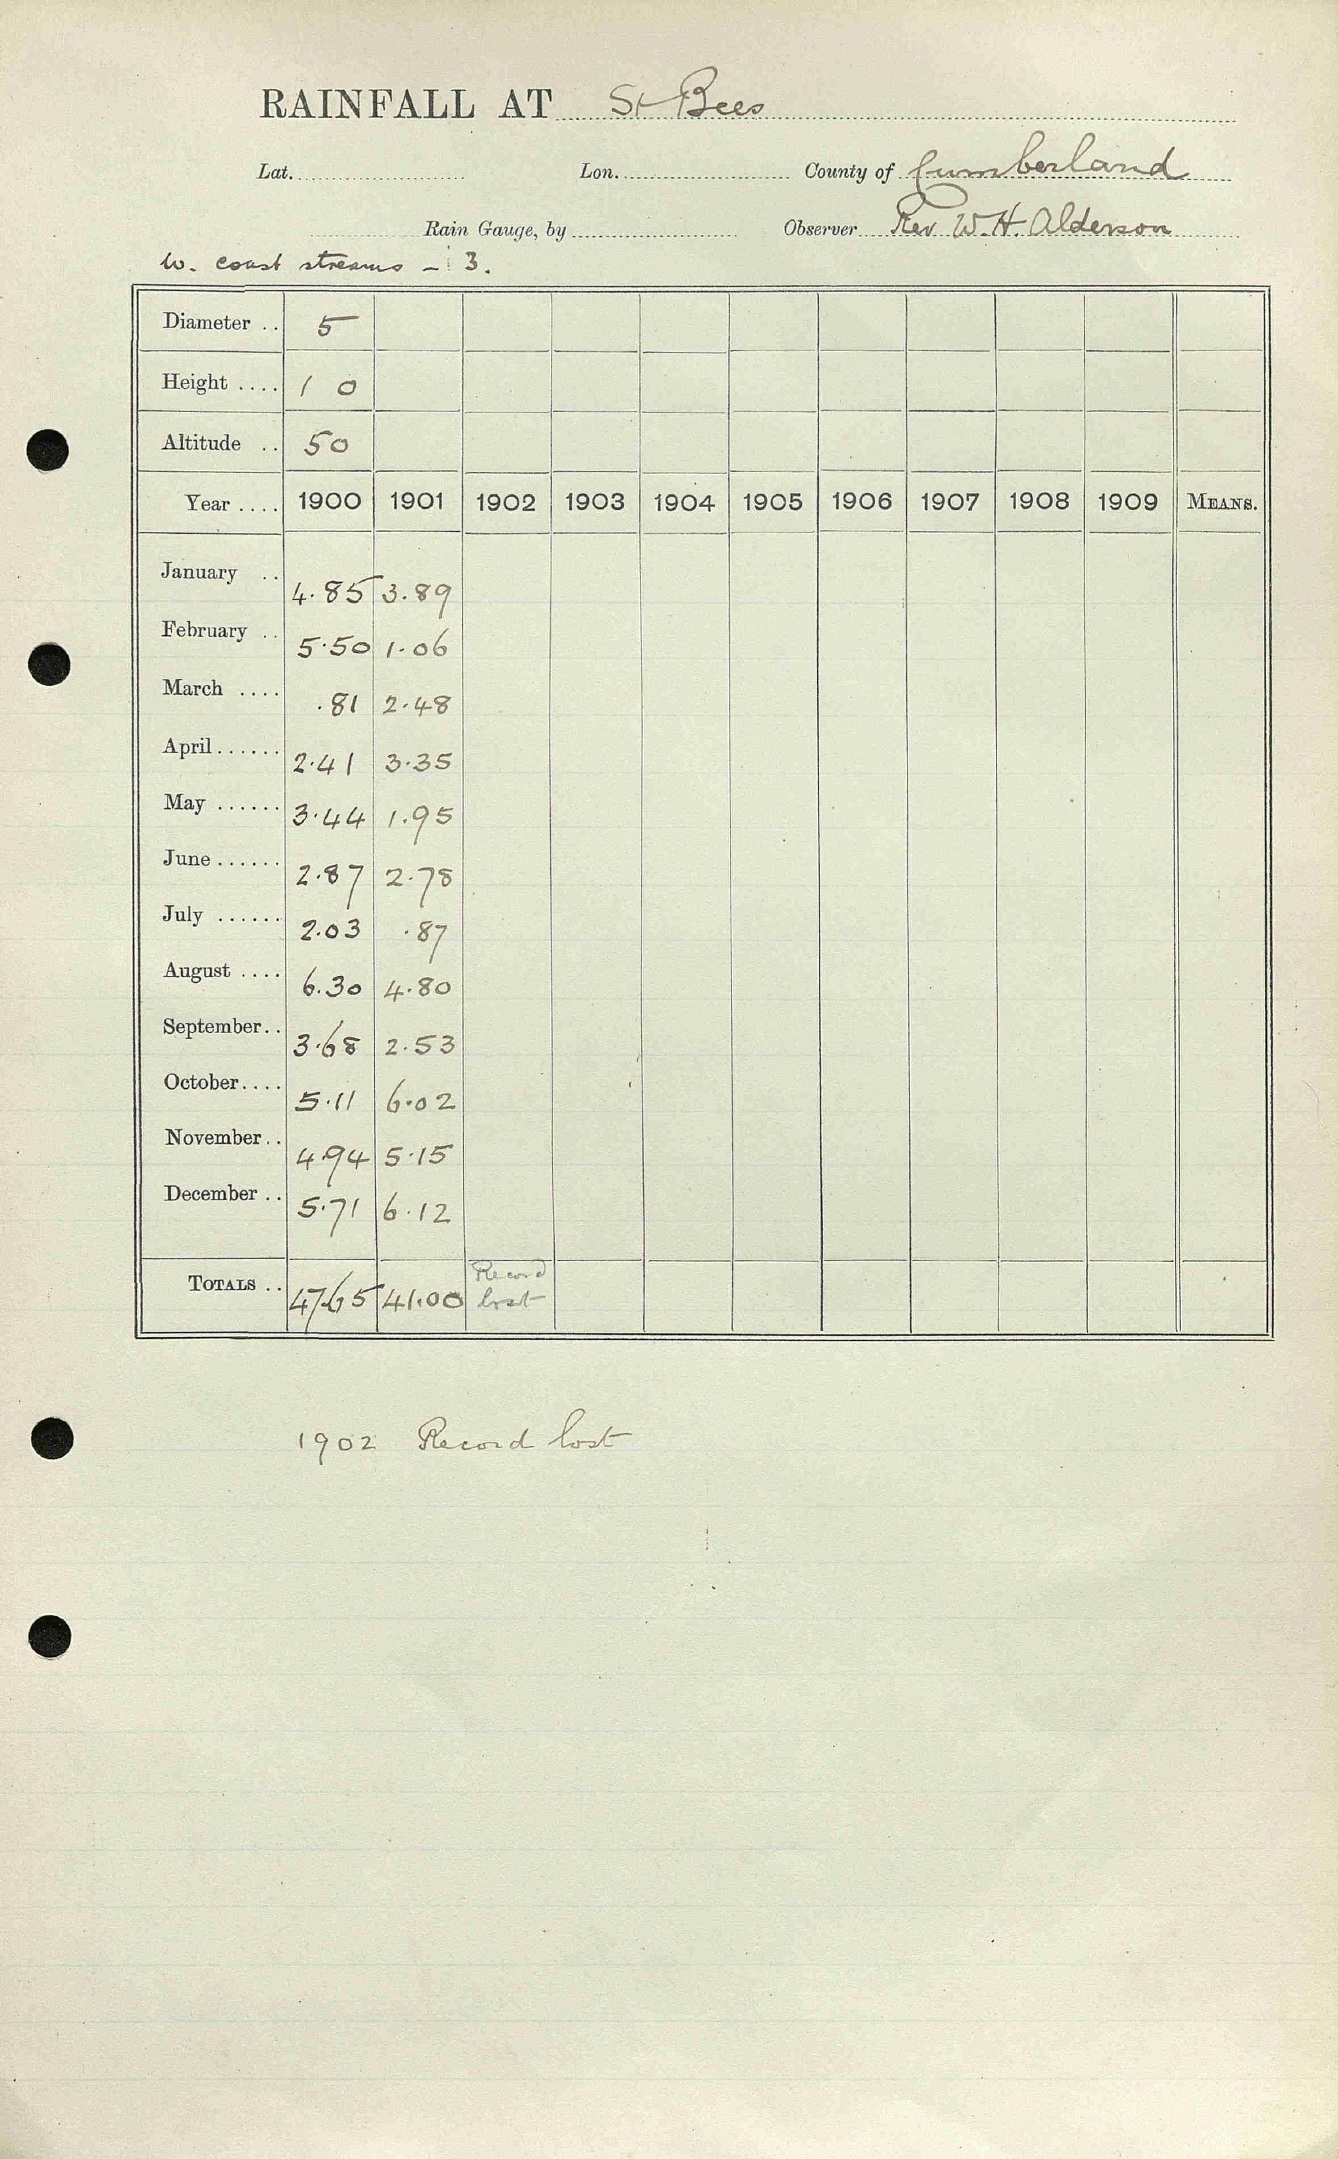 RAINFALL AT St Bees
Lat. Lon. County of Cumberland
Rain Gauge, by Observer Rev W. H. Alderson
W. coast streams - 3.
Diameter .. 5
Height .... 1 0
Altitude .. 50
Year .... 1900 1901 1902 1903 1904 1905 1906 1907 1908 1909 MEANS.
January .. 4.85 3.89
February .. 5.50 1.06
March .... .81 2.48
April ...... 2.41 3.35
May ...... 3.44 1.95
June ...... 2.87 2.78
July ...... 2.03 .87
August .... 6.30 4.80
September.. 3.68 2.53
October.... 5.11 6.02
November.. 4.94 5.15
December .. 5.71 6.12
TOTALS .. 47.65 41.00 Record lost
1902 Record lost